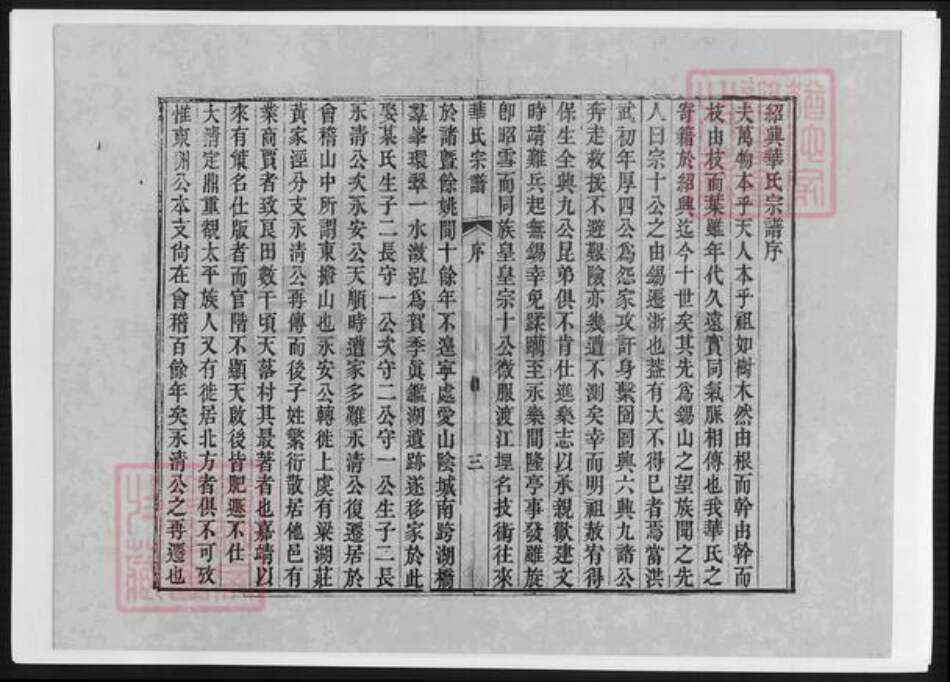 紹興華氏宗譜序
夫萬物本乎天人本乎祖如樹木然由根而幹由幹而
枝由枝而葉雖年代久遠實同氣脈相傳也我華氏之
寄籍於紹興迄今十世矣其先為錫山之望族聞之先
人曰宗十公之由錫遷浙也蓋有大不得已者焉當洪
武初年厚四公為怨家攻訐身繫囹圄興六興九諸公
奔走救援不避艱險亦幾遭不測矣幸而明祖赦宥得
保生全興九公昆弟俱不肯仕進樂志以承親歡建文
時靖難兵起無錫幸免蹂躪至永樂間隆亭事發雖旋
即昭雪而同族皇皇宗十公微服渡江埋名技術往來
華氏宗譜
序
三
於諸暨餘姚間十餘年不遑寧處愛山陰城南跨湖橋
羣峯環翠一水澂泓為賀季真鑑湖遺跡遂移家於此
娶某氏生子二長守一公次守二公守一公生子二長
永清公次永安公天順時遭家多難永清公復遷居於
會稽山中所謂東擔山也永安公轉徙上虞有梁湖莊
黃家涇分支永清公再傳而後子姓繁衍散居他邑有
業商賈者致良田數千頃天落村其最著者也嘉靖以
來有策名仕版者而官階不顯天啟後皆肥遯不仕
大清定鼎重覩太平族人又有徙居北方者俱不可攷
惟東湖公本支尚在會稽百餘年矣永清公之再遷也